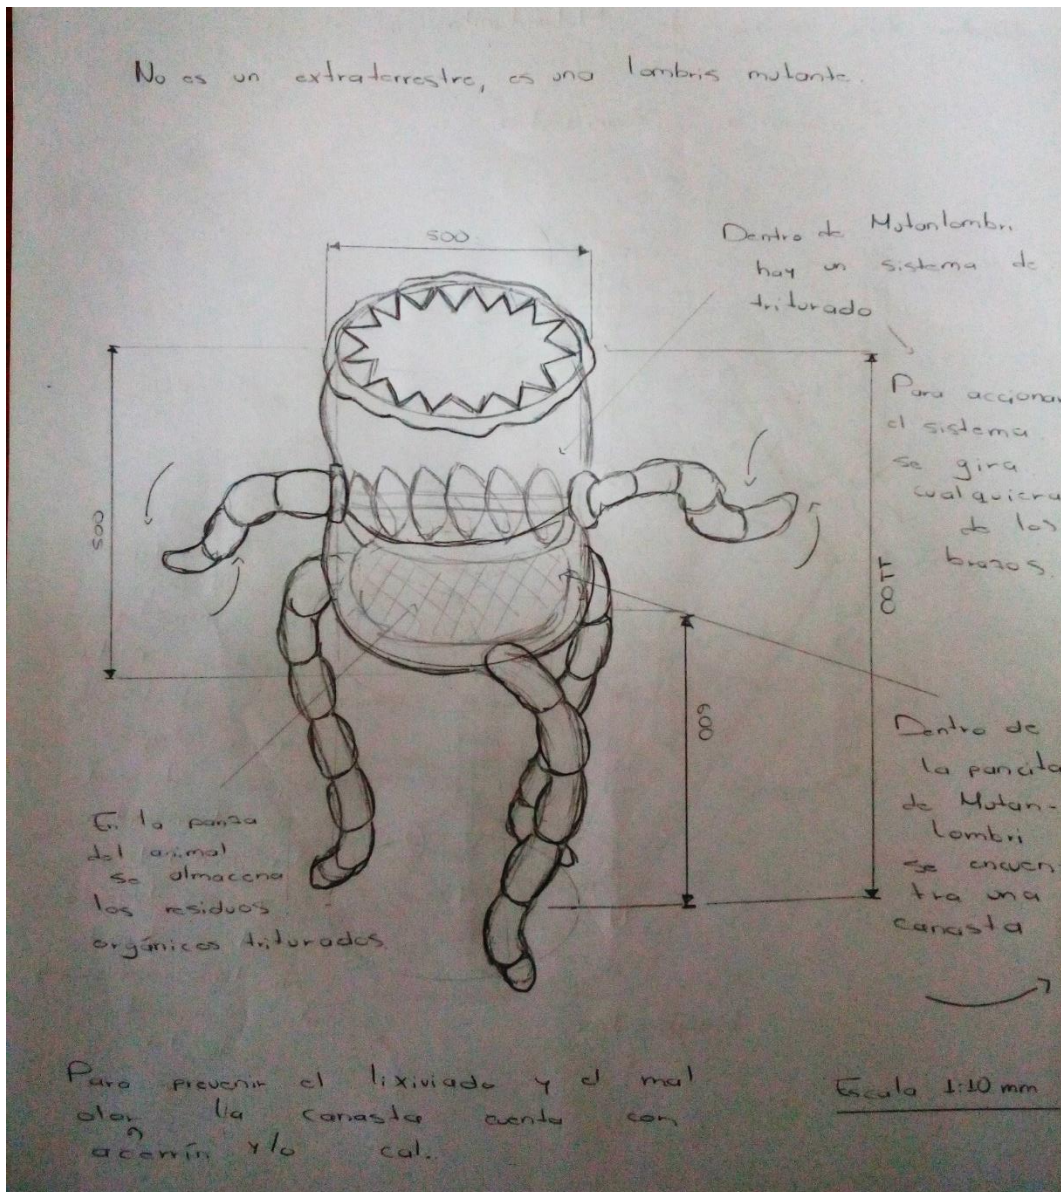 No es un extraterrestre, es una lombris mutante.
500
Dentro de Mutanlombri
hay un sistema de
triturado
Para accionar
el sistema
se gira
cualquiera
de los
brazos.
500
1100
600
Dentro de
la pancita
de Mutan-
lombri
se encuen
tra una
canasta
En la panza
del animal
se almacena
los residuos
orgánicos triturados.
Para prevenir el lixiviado y el mal
olor la canasta cuenta con
acerrín y/o cal.
Escala 1:10 mm